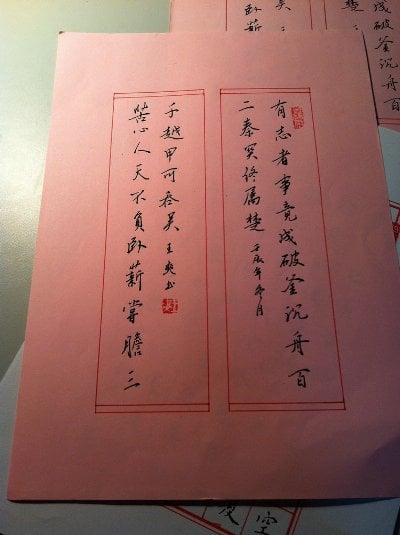 有志者事竟成破釜沉舟百
二秦关终属楚 壬辰年冬月
苦心人天不负卧薪尝膽三
千越甲可吞吴 王爽书
釜沉舟百
楚
吴
卧薪